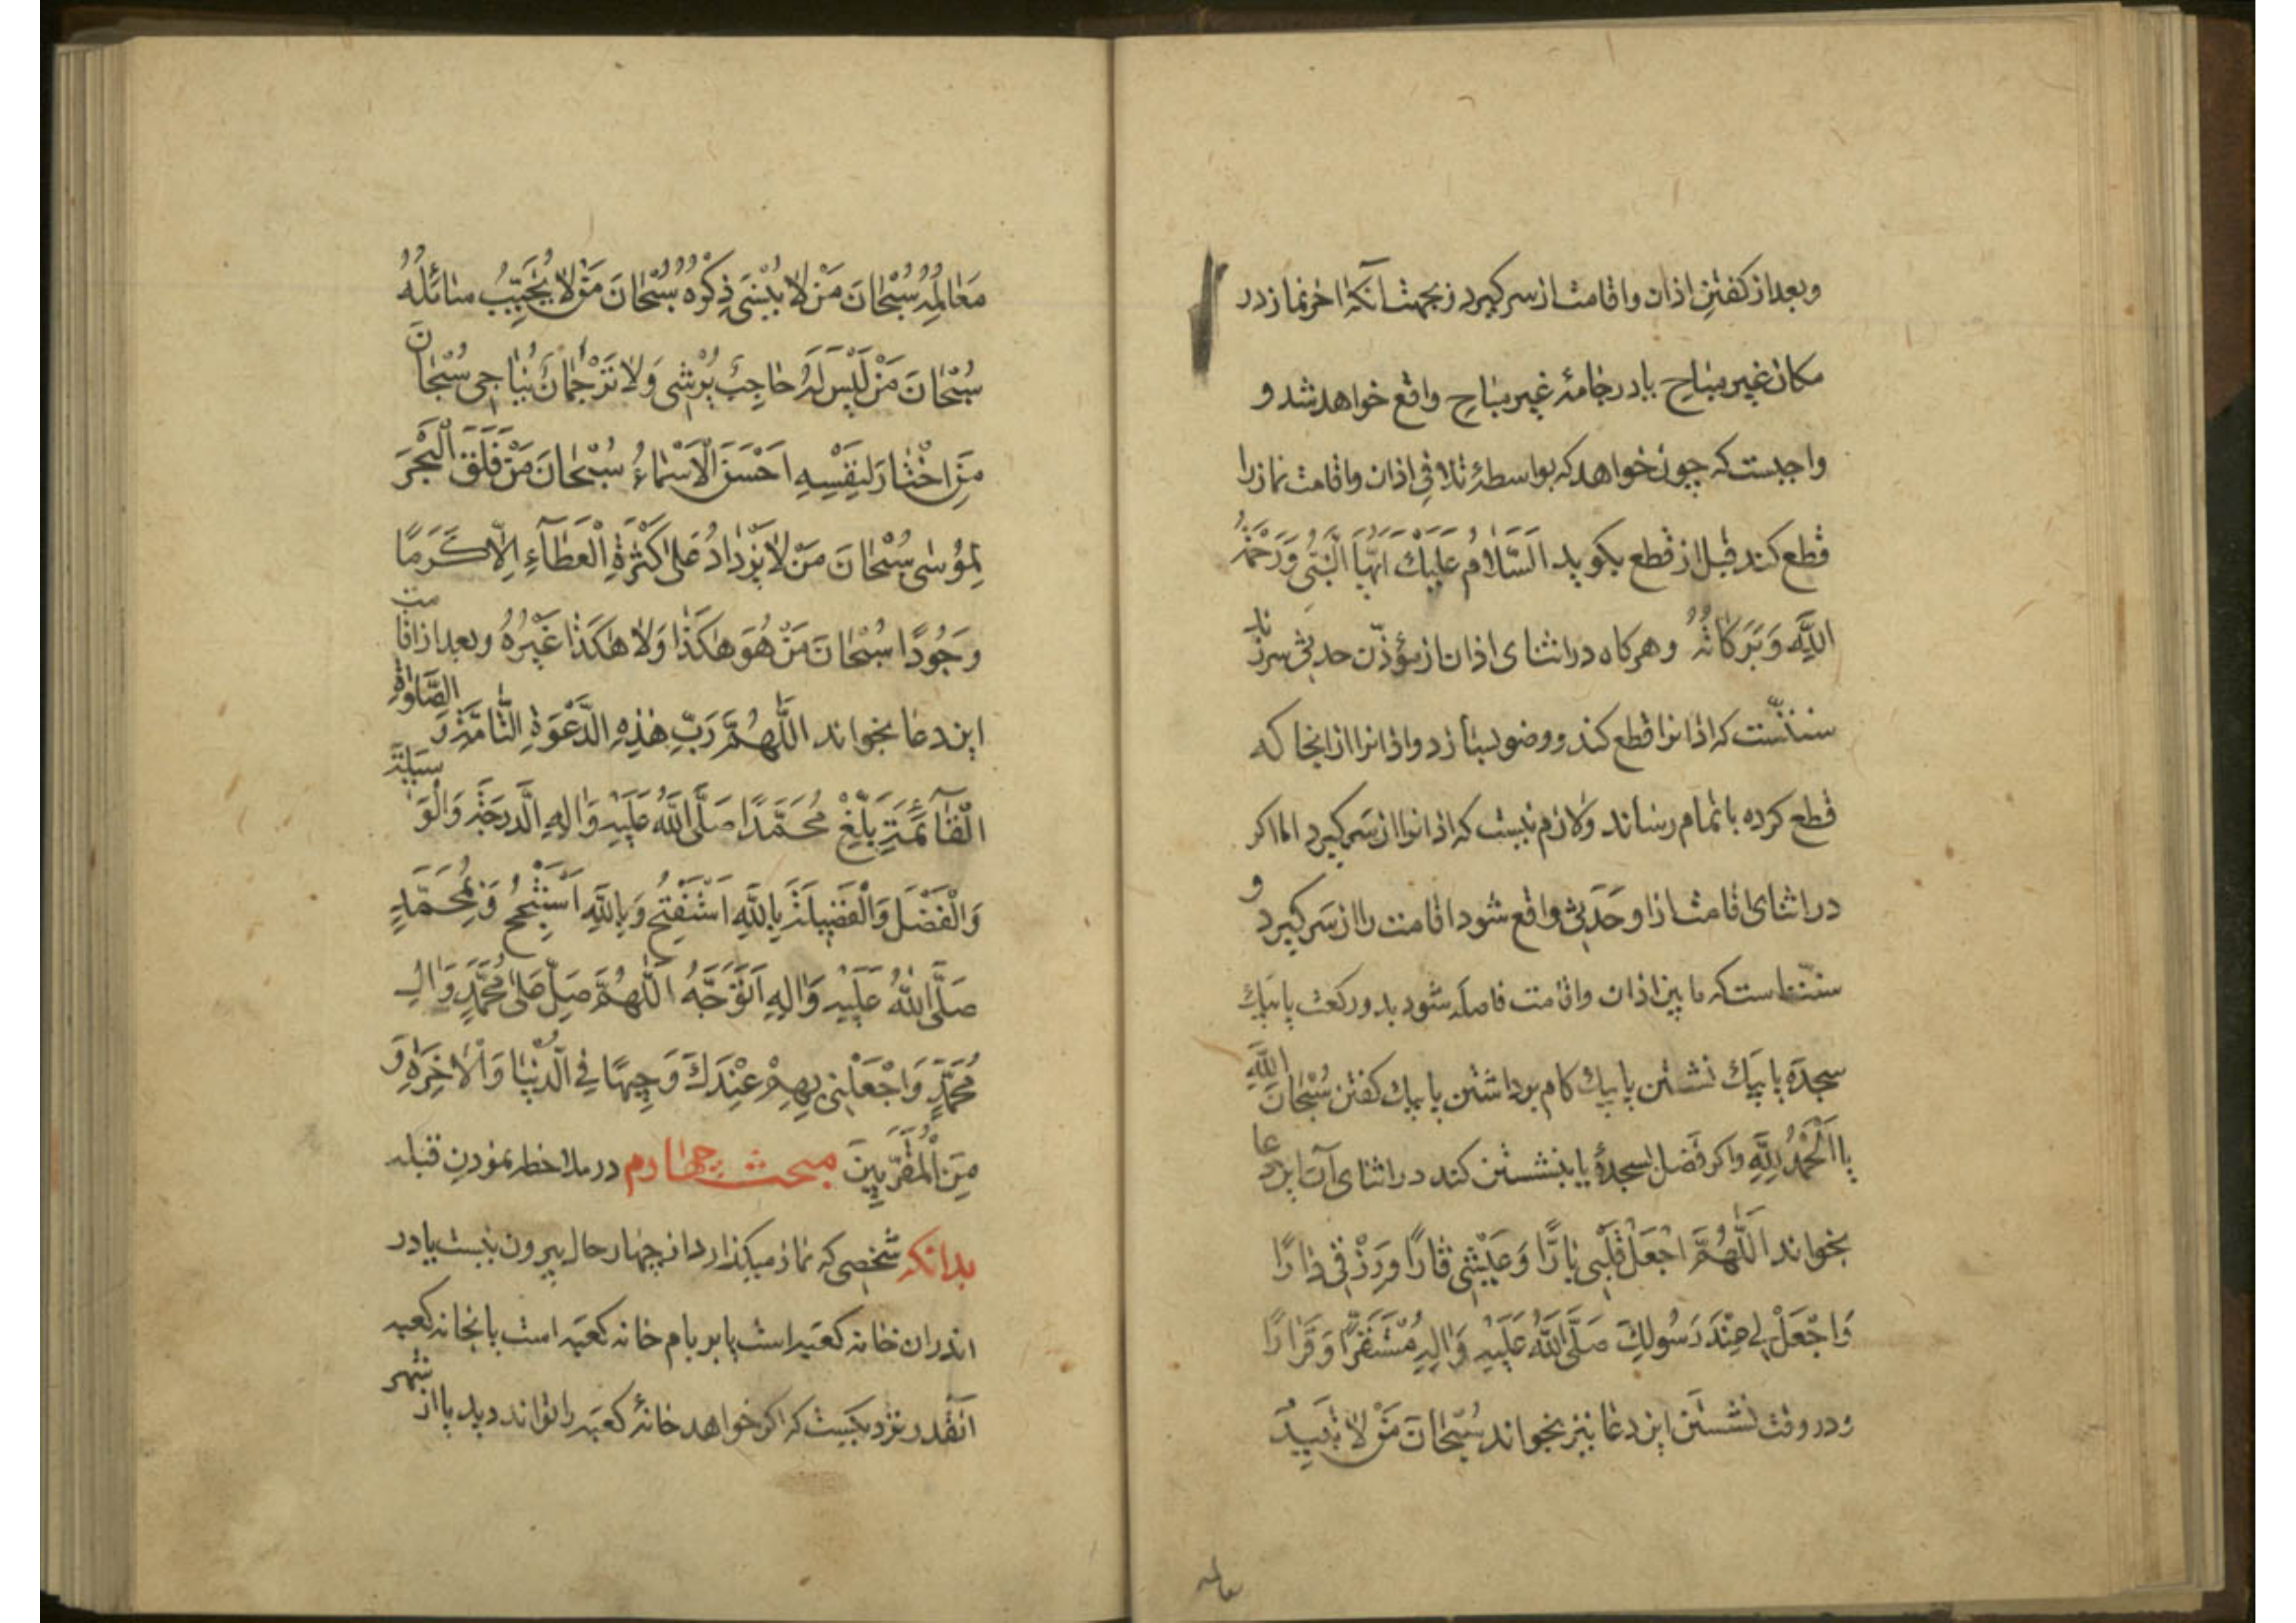 وبعد از کفتن اذان واقامت از سر کیرد زبجهت آنکه اخر نماز در
مکان غیر مباح یا در جامهٔ غیر مباح واقع خواهد شد و
واجبست که چون خواهد که بواسطهٔ تلافی اذان واقامت نماز را
قطع کند قبل از قطع بکوید اَلسَّلامُ عَلَیْكَ اَیُّهَا النَّبِیُّ وَرَحْمَةُ
اللَّهِ وَبَرَکاتُهُ وهرکاه در اثنای اذان از مؤذّن حدثی سر زند
سنّتست که اذانرا قطع کند ووضو بسازد واذانرا از انجا که
قطع کرده باتمام رساند ولازم نیست که اذانرا از سر کیرد اما اکر
در اثنای اقامت از او حَدَثی واقع شود اقامت را از سَر کیرد و
سنّتست که مابین اذان واقامت فاصله شود بدو رکعت یا بیك
سجده یا بیك نشستن یا بیك کام برداشتن یا بیك کفتن سُبْحانَ اللَّهِ
یا اَلْحَمْدُ لِلَّهِ واکر فصل بسجدهٔ یا بنشستن کند در اثنای آن این دعا
بخواند اَللَّهُمَّ اجْعَلْ قَلْبی بارًّا وَعَیْشی قارًّا وَرِزْقی دارًّا
وَاجْعَلْ لی عِنْدَ رَسُولِكَ صَلَّی اللَّهُ عَلَیْهِ وَالِهِ مُسْتَقَرًّا وَقَرارًا
ودر وقت نشستن این دعا نیز بخواند سُبْحانَ مَنْ لا تَبیدُ
معالمه
مَعالِمُهُ سُبْحانَ مَنْ لا یَنْسی ذِکْرَهُ سُبْحانَ مَنْ لا یُخَیِّبُ سائِلَهُ
سُبْحانَ مَنْ لَیْسَ لَهُ حاجِبٌ یُرْشی وَلا تَرْجُمانٌ یُناجی سُبْحانَ
مَنِ اخْتارَ لِنَفْسِهِ اَحْسَنَ الْاَسْماءُ سُبْحانَ مَنْ فَلَقَ الْبَحْرَ
لِمُوسی سُبْحانَ مَنْ لا یَزْدادُ عَلی کَثْرَةِ الْعَطآءِ اِلّا کَرَمًا
وَجُودًا سُبْحانَ مَنْ هُوَ هکَذا وَلا هکَذا غَیْرُهُ وبعد از اقامت
این دعا بخواند اَللَّهُمَّ رَبَّ هذِهِ الدَّعْوَةِ التّامَّةِ وَ الصَّلوةِ
الْقآئِمَةِ بَلِّغْ مُحَمَّدًا صَلَّی اللَّهُ عَلَیْهِ وَالِهِ الدَّرَجَةَ وَالْوَسیلَةَ
وَالْفَضْلَ وَالْفَضیلَةَ بِاللَّهِ اَسْتَفْتِحُ وَبِاللَّهِ اَسْتَنْجِحُ وَبِمُحَمَّدٍ
صَلَّی اللَّهُ عَلَیْهِ وَالِهِ اَتَوَجَّهُ اَللَّهُمَّ صَلِّ عَلی مُحَمَّدٍ وَالِ
مُحَمَّدٍ وَاجْعَلْنی بِهِمْ عِنْدَكَ وَجیهًا فِی الدُّنْیا وَالْاخِرَةِ وَ
مِنَ الْمُقَرَّبینَ مبحث چهارم در ملاحظه نمودن قبله
بدانکه شخصی که نماز میکذارد از چهار حال بیرون نیست یا در
اندران خانه کعبه است یا بر بام خانه کعبه است یا بخانه کعبه
آنقدر نزدیکست که اکر خواهد خانهٔ کعبه را تواند دید یا از شهر